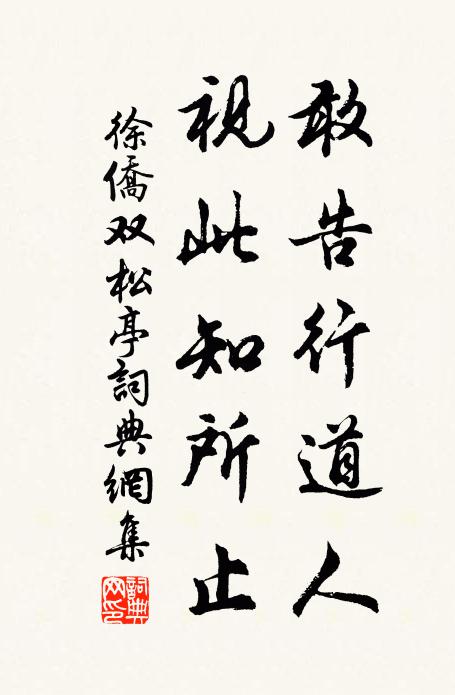 敢告行道人
視此知所止
徐僑双松亭詞典網集
詞典
网印